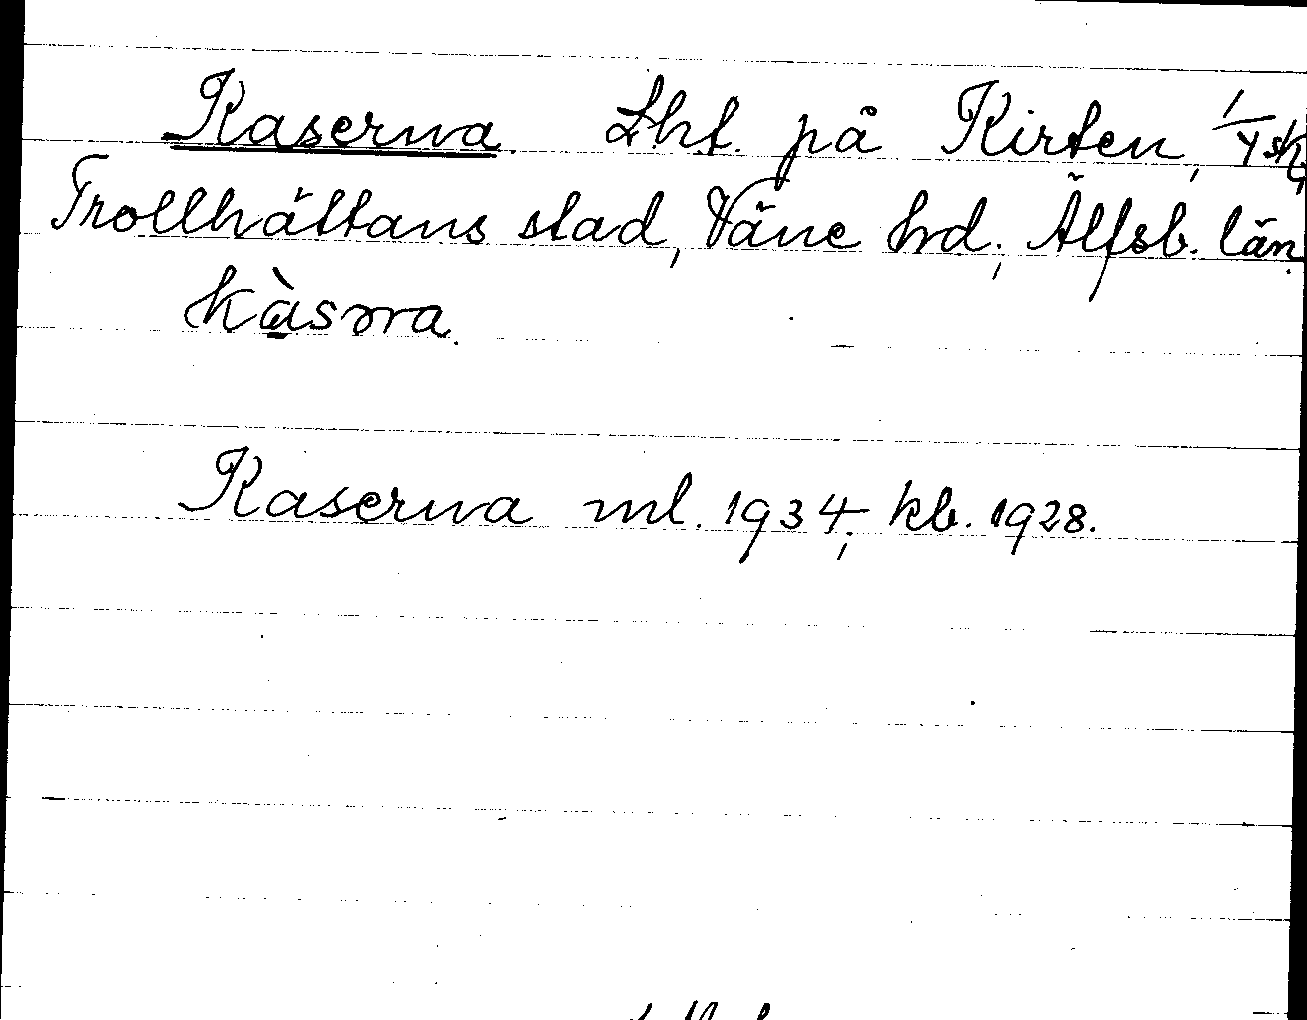 Kaserna. Lht. på Kirten, 1/4 sk,
Trollhättans stad, Väne hd; Älfsb. län.
Kaserna ml. 1934; kb. 1928.